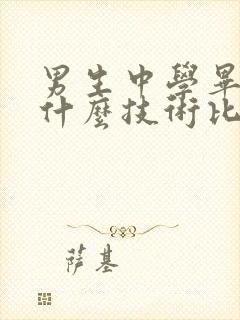 男生中學畢
什麼技術比
薩基